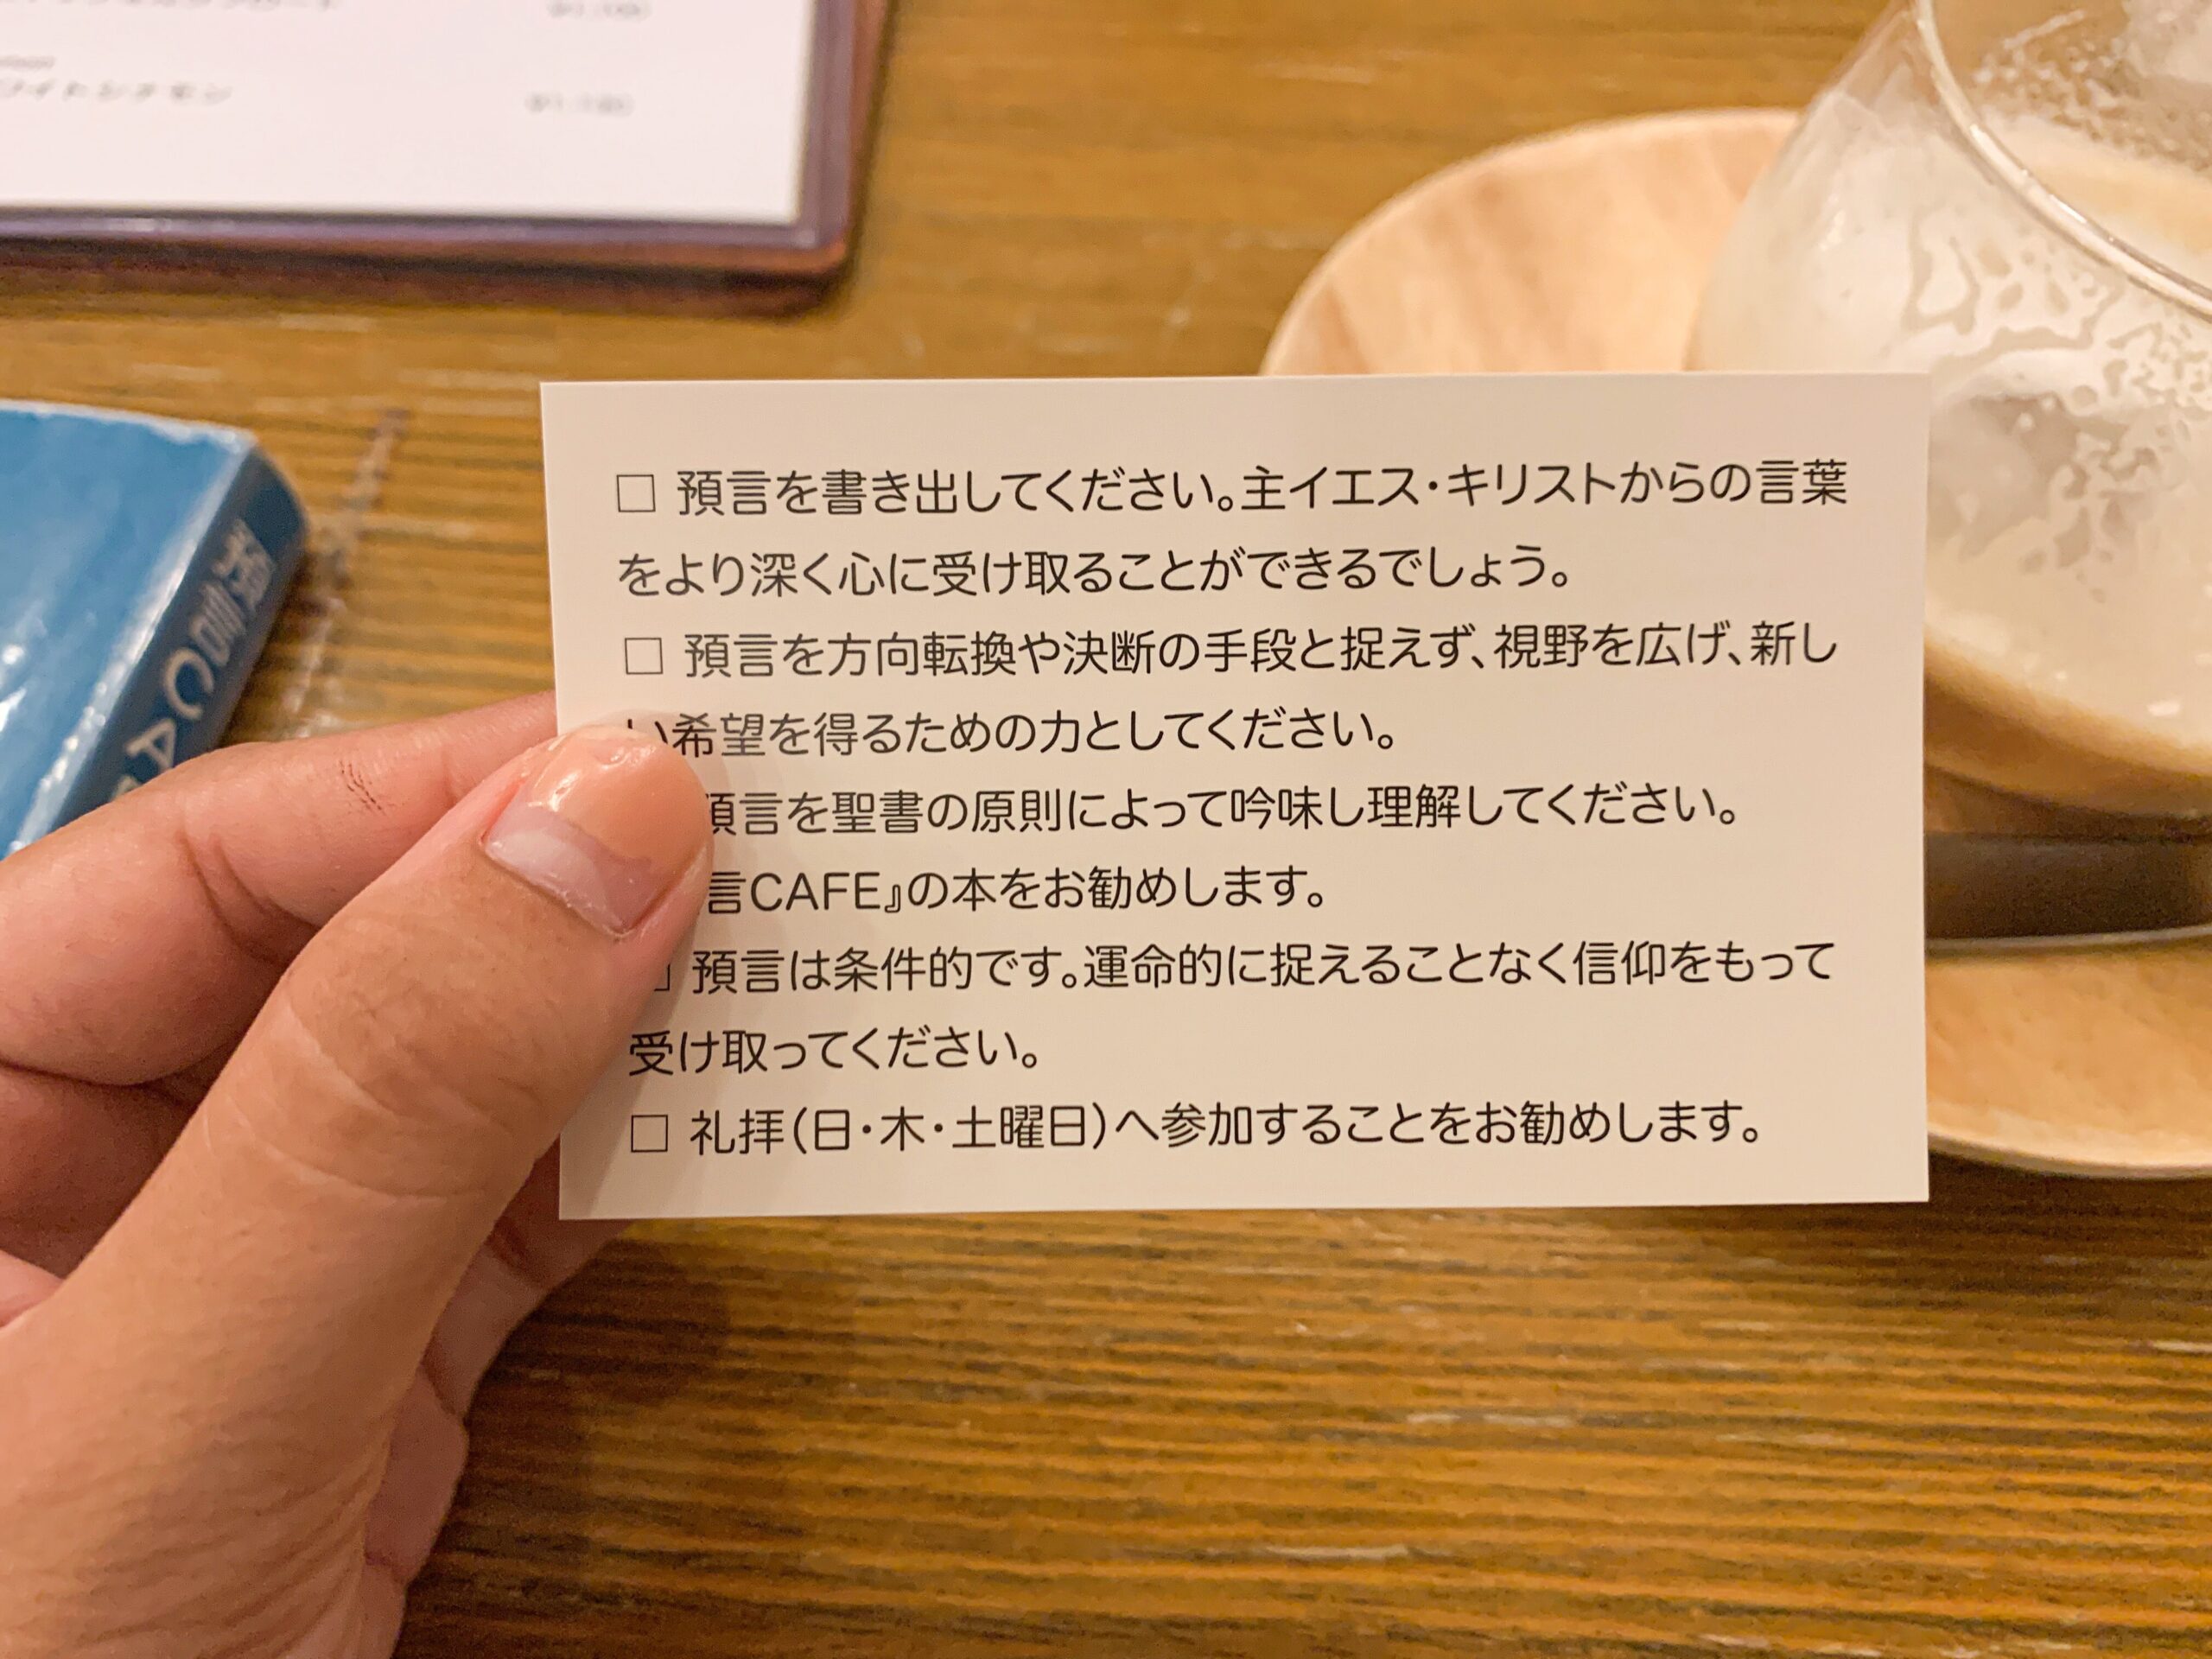 □ 預言を書き出してください。主イエス・キリストからの言葉
をより深く心に受け取ることができるでしょう。
□ 預言を方向転換や決断の手段と捉えず、視野を広げ、新し
い希望を得るための力としてください。
預言を聖書の原則によって吟味し理解してください。
言CAFE』の本をお勧めします。
□ 預言は条件的です。運命的に捉えることなく信仰をもって
受け取ってください。
□ 礼拝(日・木・土曜日)へ参加することをお勧めします。
預言CA